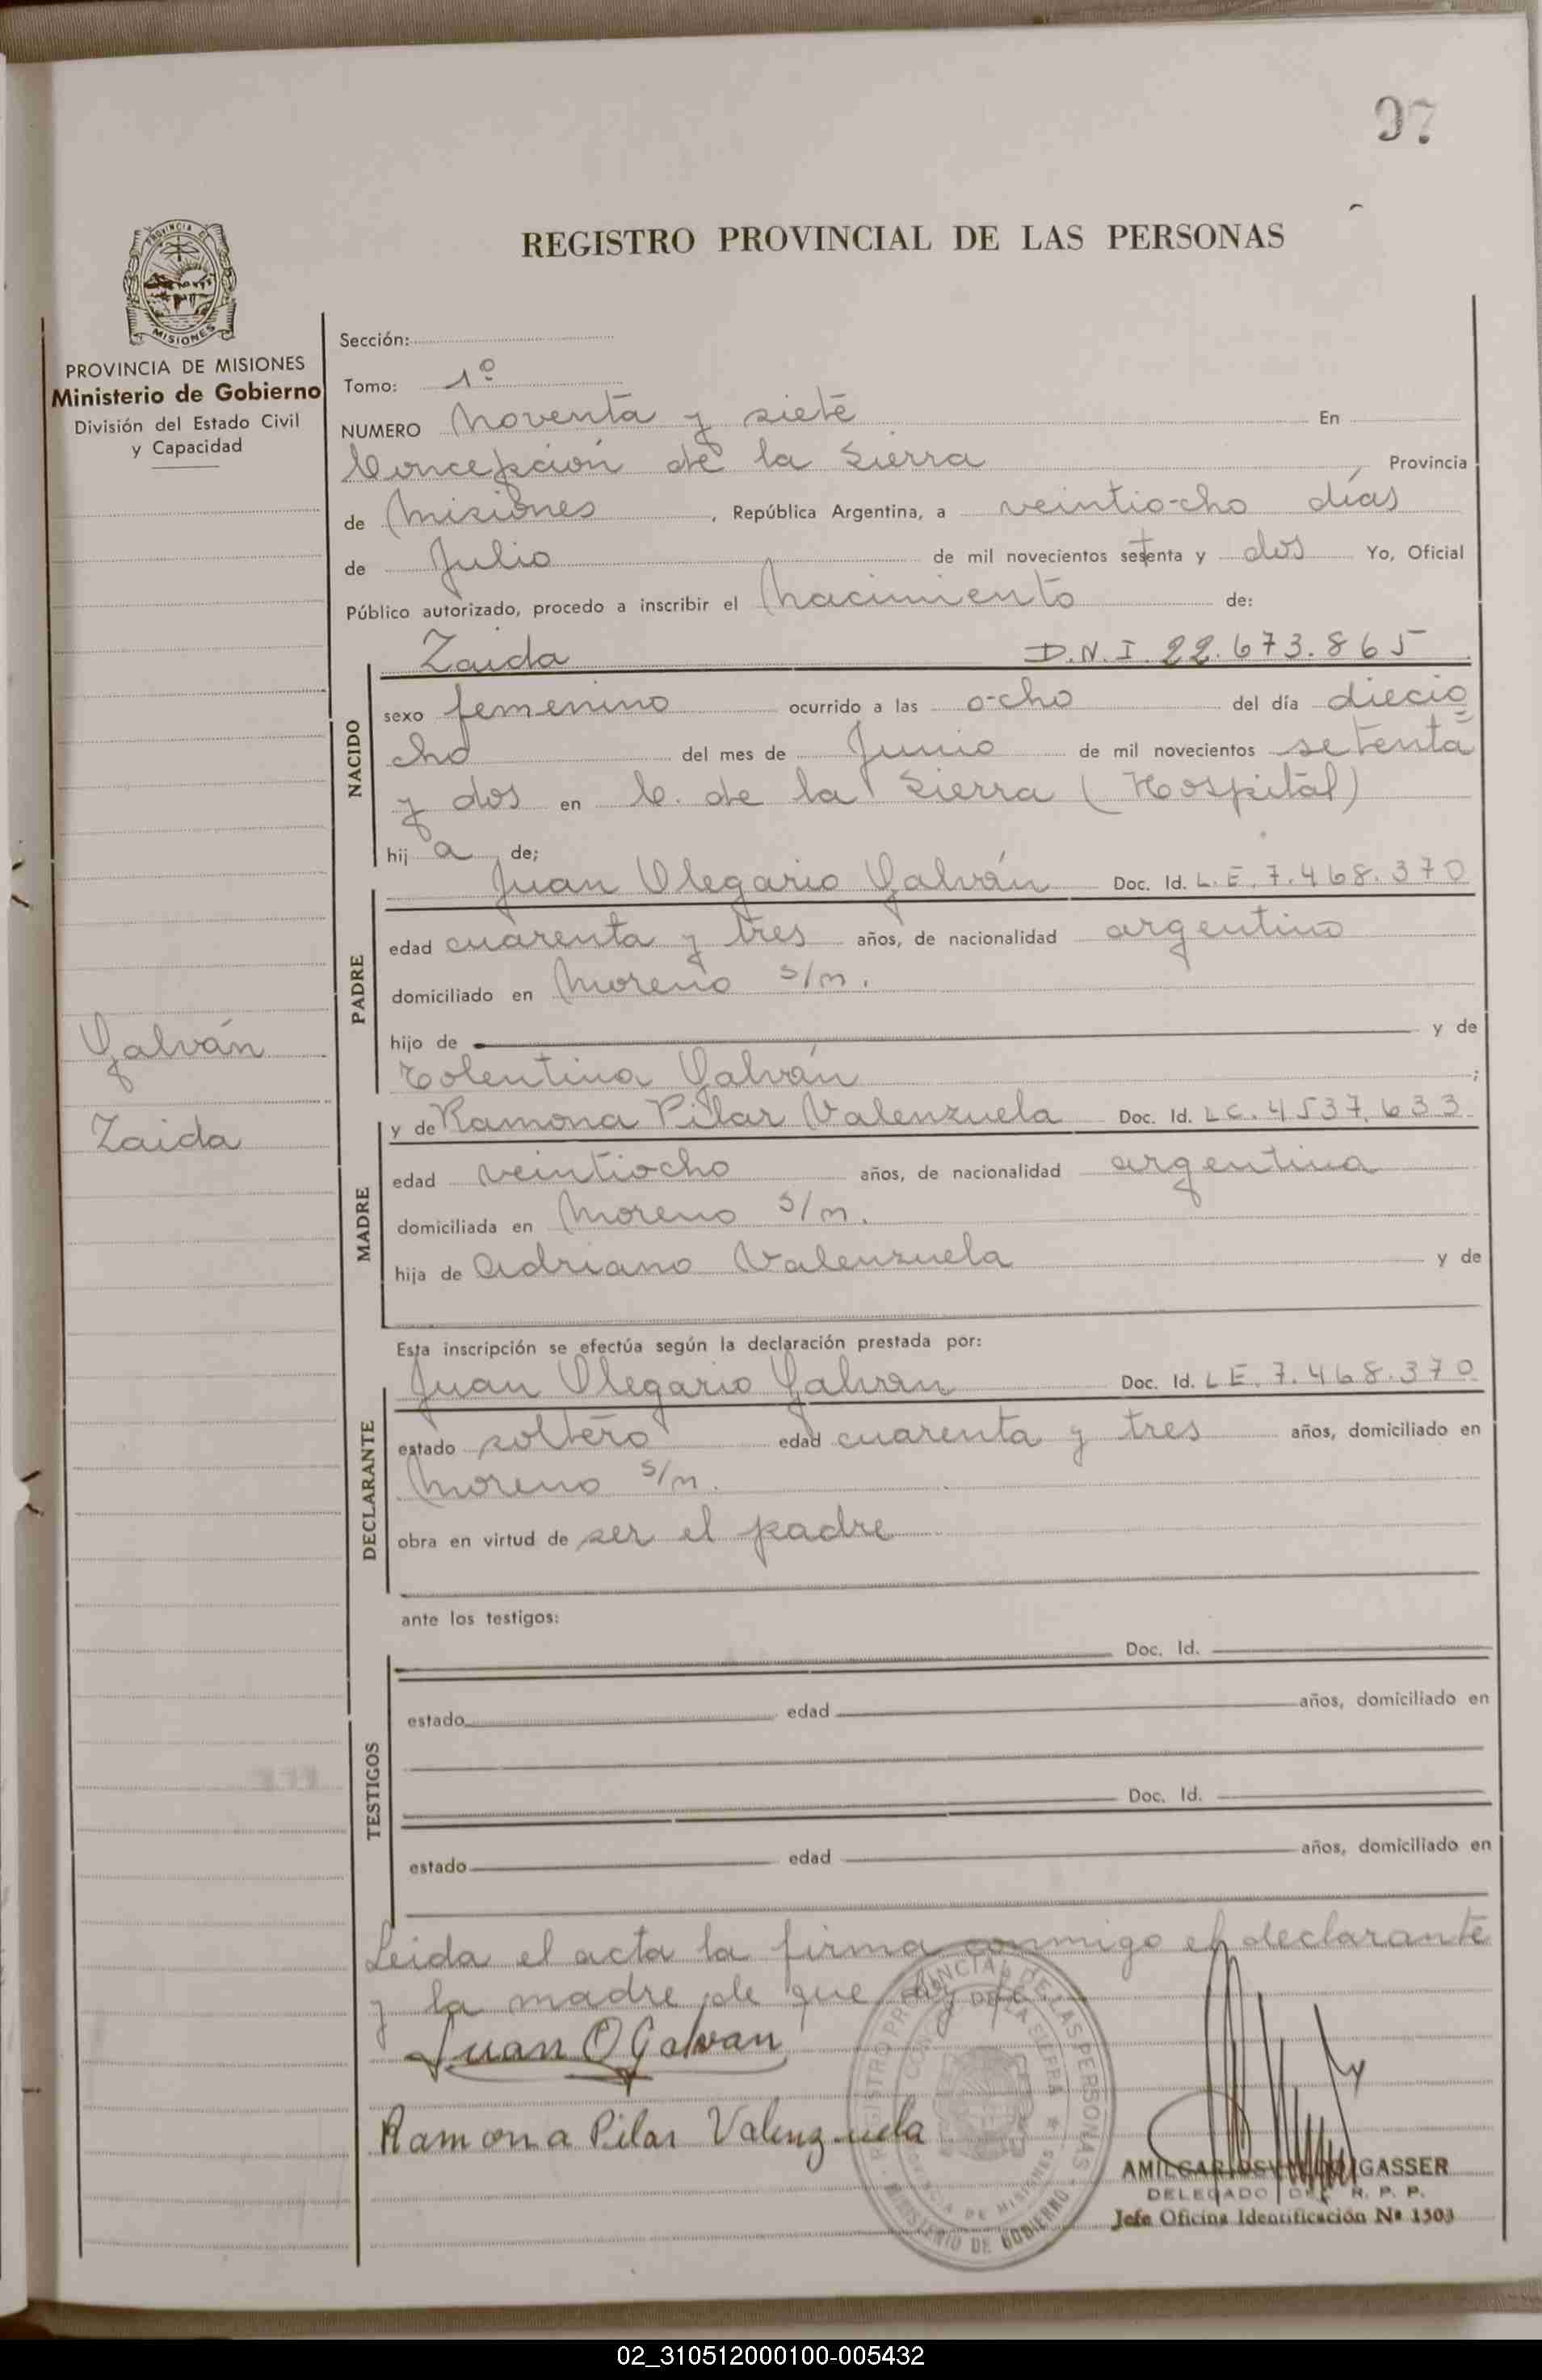 97
REGISTRO PROVINCIAL DE LAS PERSONAS
PROVINCIA DE MISIONES
Ministerio de Gobierno
División del Estado Civil
y Capacidad
Galván
Zaida
Sección:
Tomo: 1º
NUMERO Noventa y siete En
Concepción de la Sierra Provincia
de Misiones, República Argentina, a veintiocho días
de Julio de mil novecientos setenta y dos Yo, Oficial
Público autorizado, procedo a inscribir el Nacimiento de:
Zaida D.N.I. 22.673.865
NACIDO
sexo femenino ocurrido a las ocho del día diecio=
cho del mes de Junio de mil novecientos setenta
y dos en C. de la Sierra (Hospital)
hija de;
Juan Olegario Galván Doc. Id. L.E. 7.468.370
PADRE
edad cuarenta y tres años, de nacionalidad argentino
domiciliado en Moreno s/n.
hijo de y de
Tolentina Galván ;
y de Ramona Pilar Valenzuela Doc. Id. LC. 4537.633
MADRE
edad veintiocho años, de nacionalidad argentina
domiciliada en Moreno s/n.
hija de Adriano Valenzuela y de
Esta inscripción se efectúa según la declaración prestada por:
Juan Olegario Galvan Doc. Id. LE. 7.468.370
DECLARANTE
estado soltero edad cuarenta y tres años, domiciliado en
Moreno s/n.
obra en virtud de ser el padre
ante los testigos:
Doc. Id.
TESTIGOS
estado edad años, domiciliado en
Doc. Id.
estado edad años, domiciliado en
Leida el acta la firma conmigo el declarante
y la madre de que doy fe
Juan O Galvan
Ramona Pilar Valenzuela
REGISTRO PROVINCIAL DE LAS PERSONAS
MINISTERIO DE GOBIERNO
GASSER
DELEGADO DEL R. P. P.
Jefe Oficina Identificación Nº 1503
02_310512000100-005432